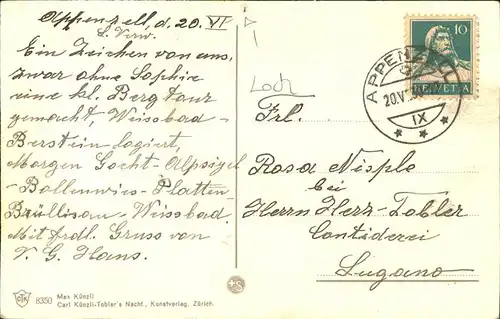 Appenzell, d. 20. VI
L. Verw.
Ein Zeichen von uns,
zwar ohne Sophie
eine kl. Bergtour
gemacht Weissbad -
logiert,
Morgen Alpsigel
- Bollenwies - Platten
Brüllisau - Weissbad.
Mit frdl. Gruss von
V. G. Hans.
Loch
Frl.
Rosa Nisple
bei
Herrn Herz-Tobler
Lugano
10
HELVETIA
APPENZELL
20.V
IX
CTK 8350 Max Künzli
Carl Künzli-Tobler's Nachf., Kunstverlag, Zürich.